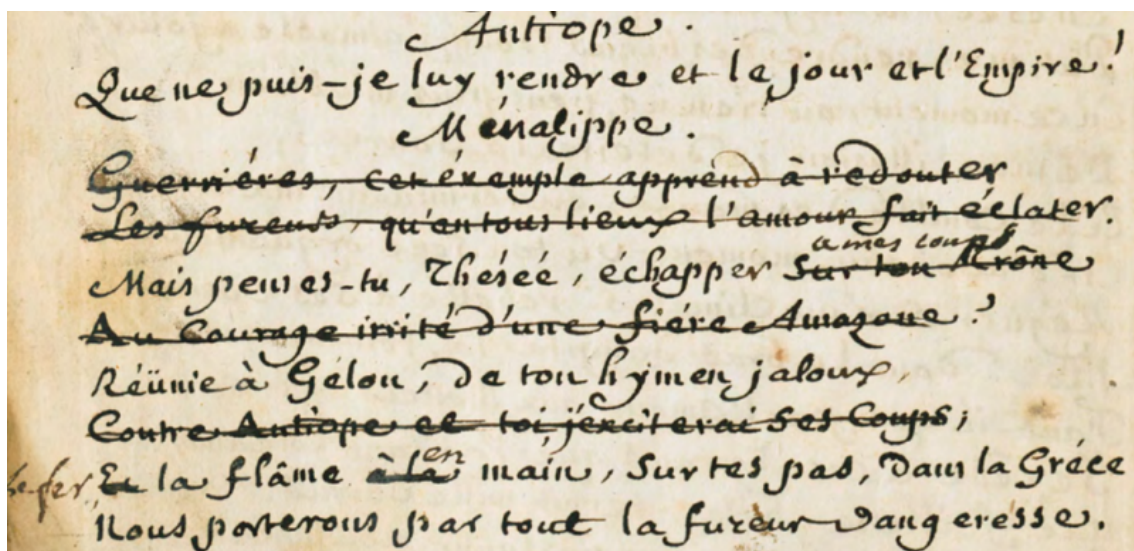 Antiope.
Que ne puis-je luy rendre et le jour et l'Empire!
Ménalippe.
Guerriéres, cet éxemple apprend à rédouter
Les fureurs, qu'en tous lieux l'amour fait éclater.
a mes coups
Mais penses-tu, Théséé, échapper sur ton thrône
Au Courage irrité d'une fiére Amazone?
Réünie à Gélon, de ton hymen jaloux,
Contre Antiope et toi, j'exciterai ses Coups;
en
le fer, Et la flâme à la main, sur tes pas, dans la Gréce
Nous porterons par tout la fureur vangeresse.